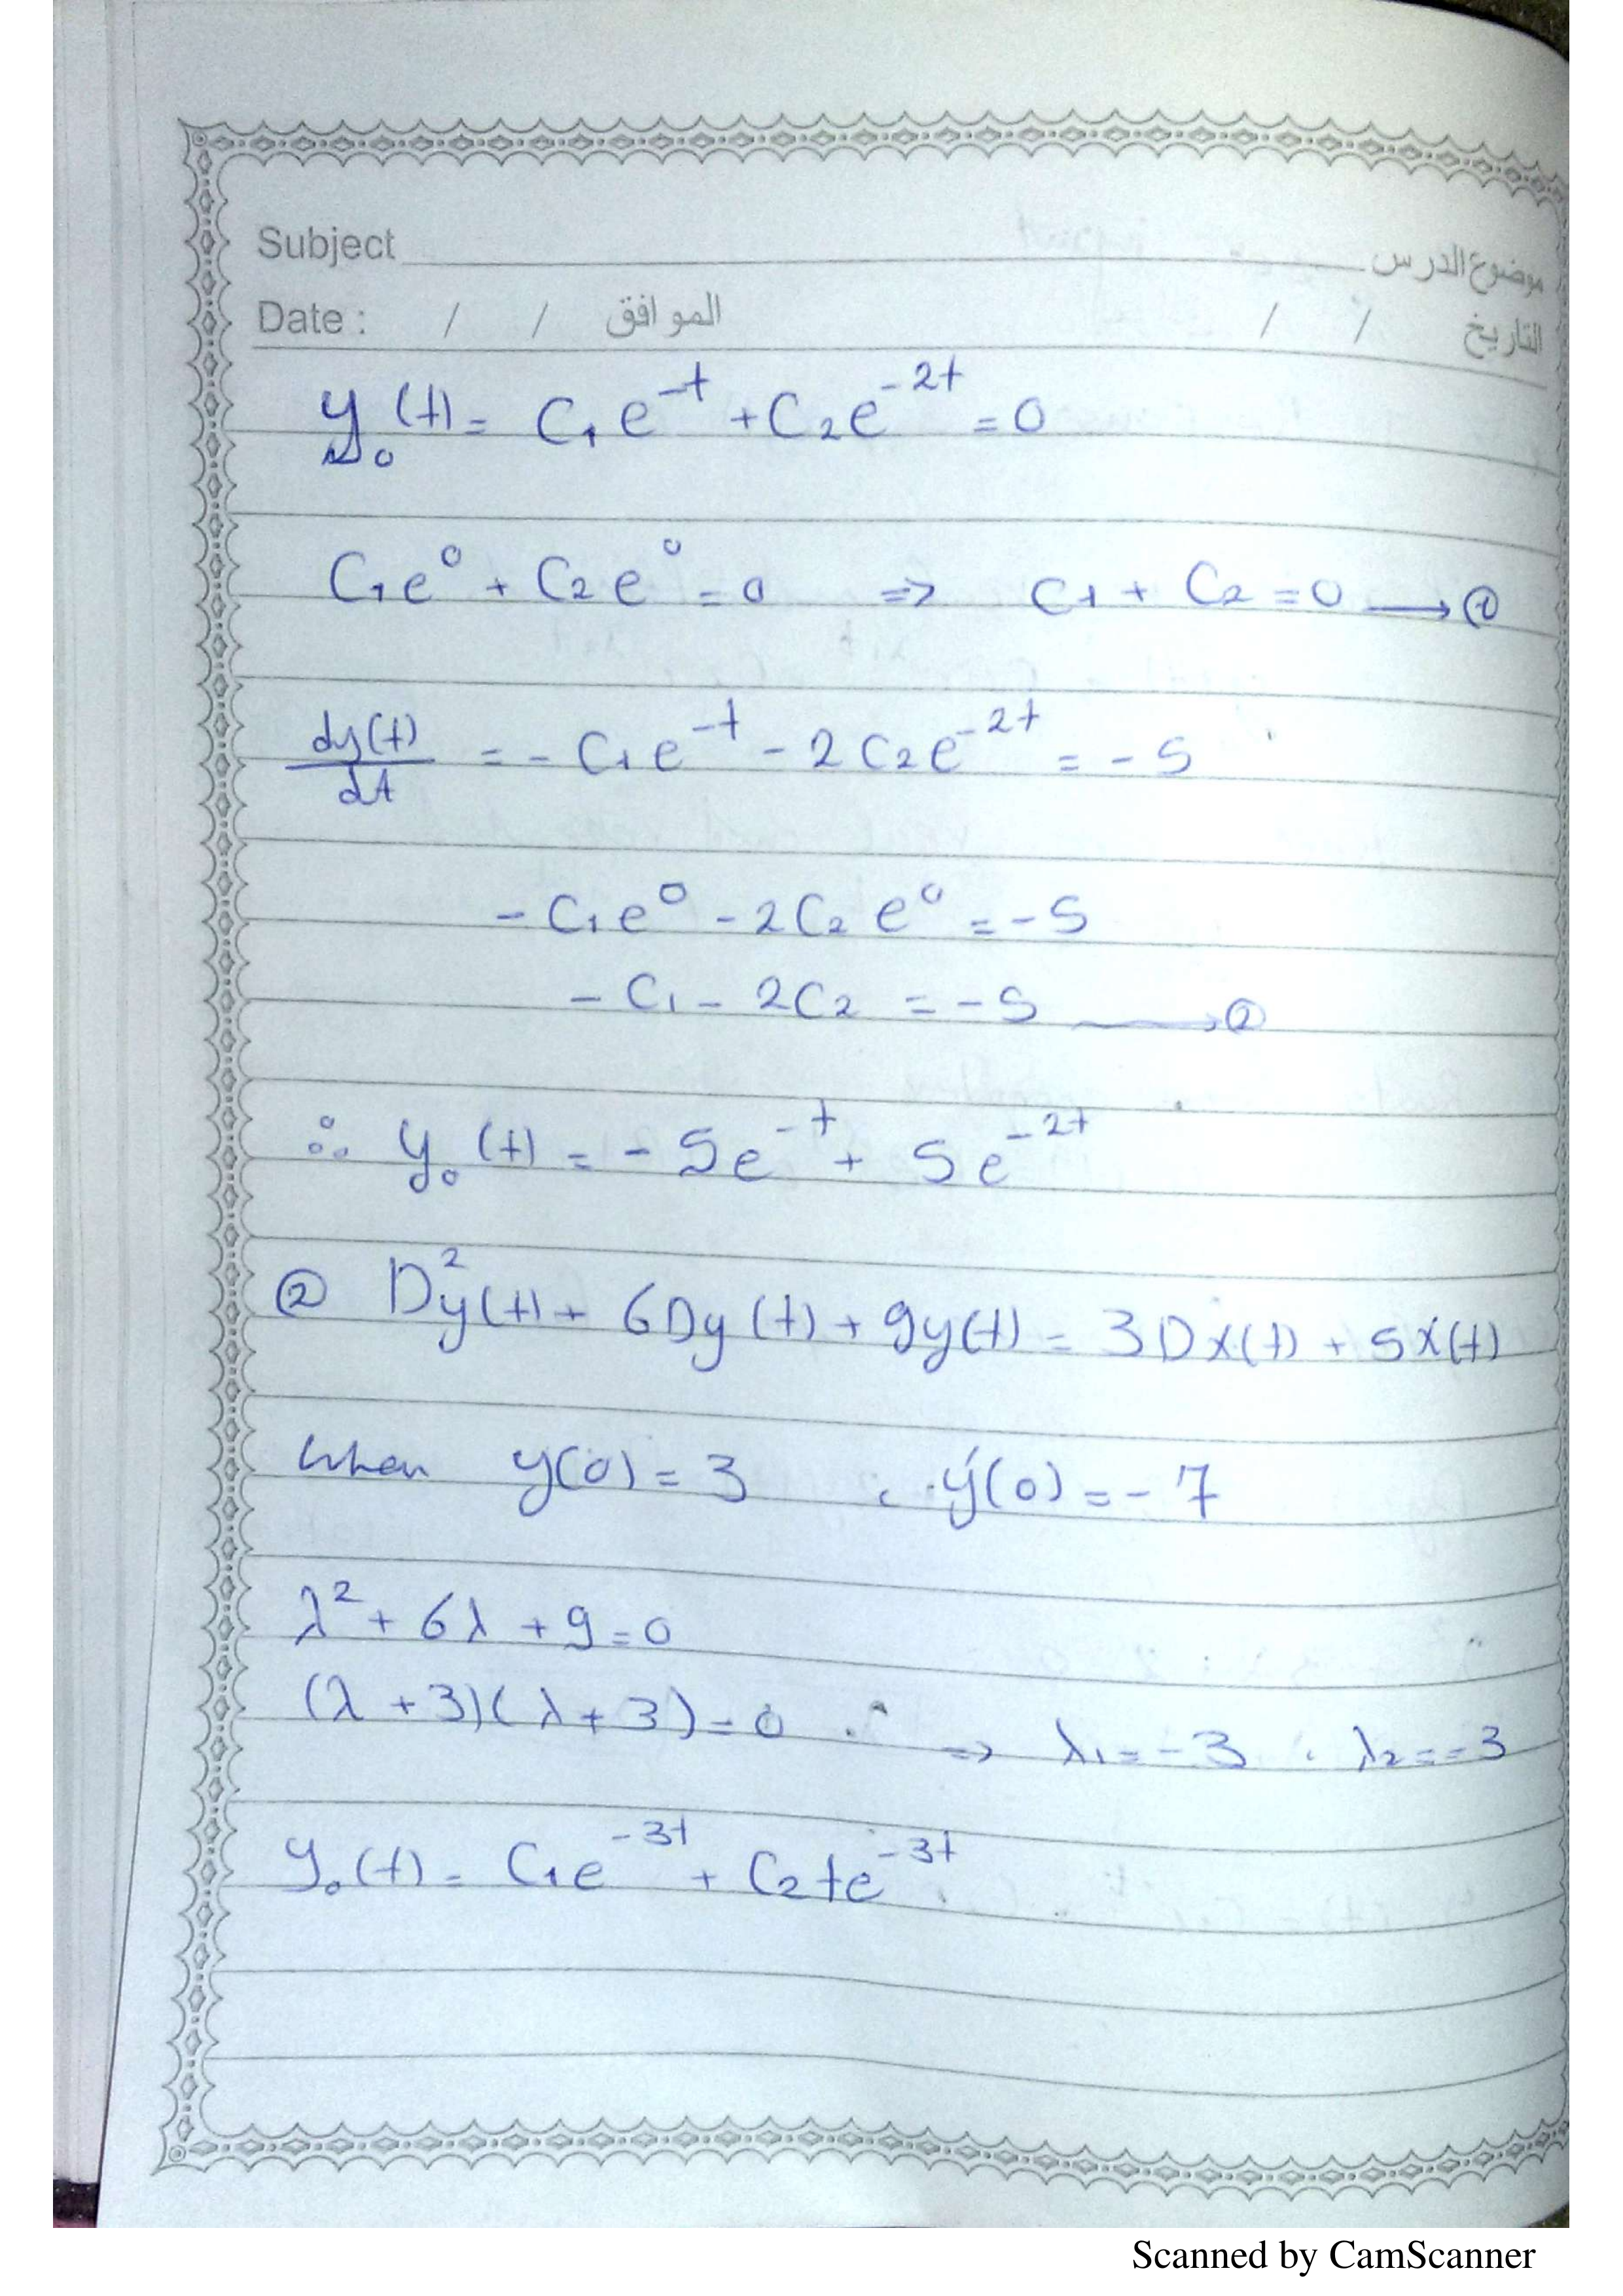 Subject موضوع الدرس
Date : / / الموافق / / التاريخ
y₀(t) = C₁e^-t + C₂e^-2t = 0
C₁e^0 + C₂e^0 = 0 ⇒ C1 + C₂ = 0 → ①
dy(t)/dt = - C₁e^-t - 2C₂e^-2t = -5
- C₁e^0 - 2C₂e^0 = -5
- C₁ - 2C₂ = -5 → ②
∴ y₀(t) = - 5e^-t + 5e^-2t
② D²y(t) + 6Dy(t) + 9y(t) = 3Dx(t) + 5x(t)
when y(0) = 3 , ý(0) = - 7
λ² + 6λ + 9 = 0
(λ + 3)(λ + 3) = 0 ⇒ λ₁ = -3 , λ₂ = -3
y₀(t) = C₁e^-3t + C₂te^-3t
Scanned by CamScanner